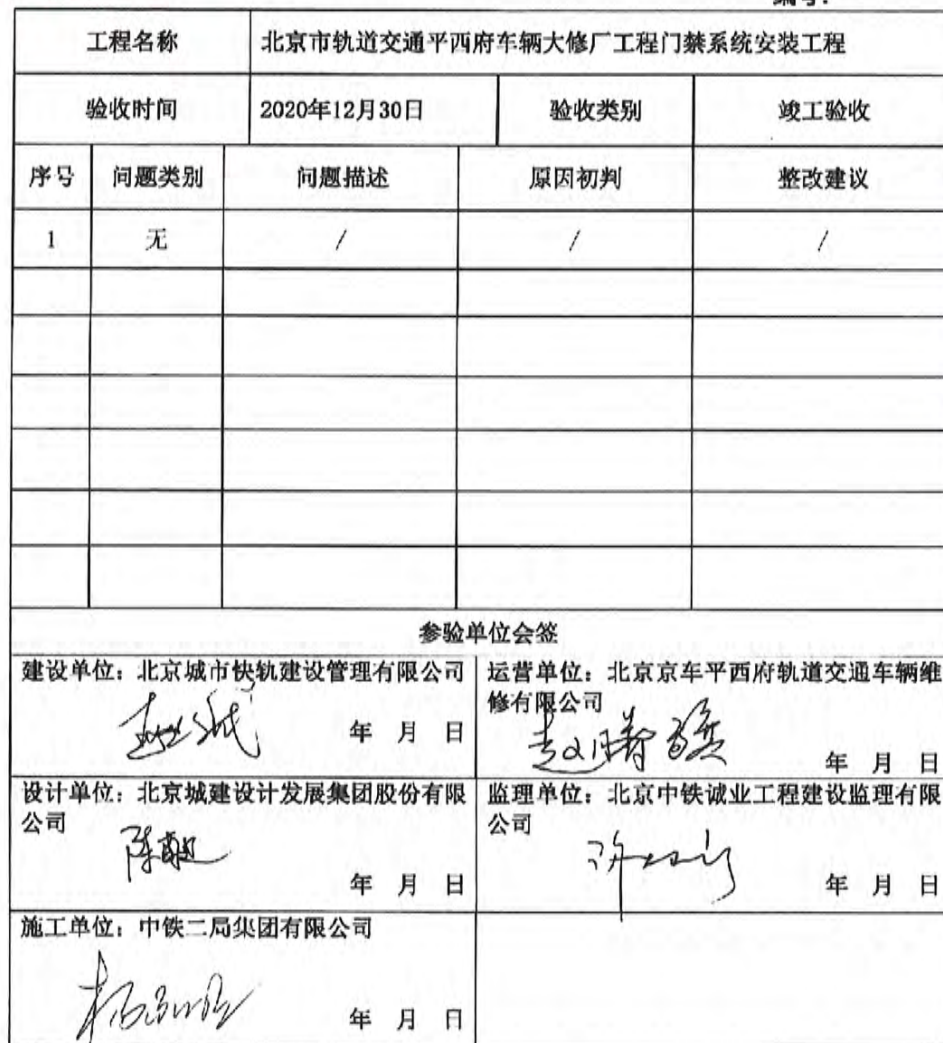 编号:
工程名称 北京市轨道交通平西府车辆大修厂工程门禁系统安装工程
验收时间 2020年12月30日 验收类别 竣工验收
序号 问题类别 问题描述 原因初判 整改建议
1 无 / / /
参验单位会签
建设单位：北京城市快轨建设管理有限公司
年 月 日
运营单位：北京京车平西府轨道交通车辆维
修有限公司
年 月 日
设计单位：北京城建设计发展集团股份有限
公司
年 月 日
监理单位：北京中铁诚业工程建设监理有限
公司
年 月 日
施工单位：中铁二局集团有限公司
年 月 日